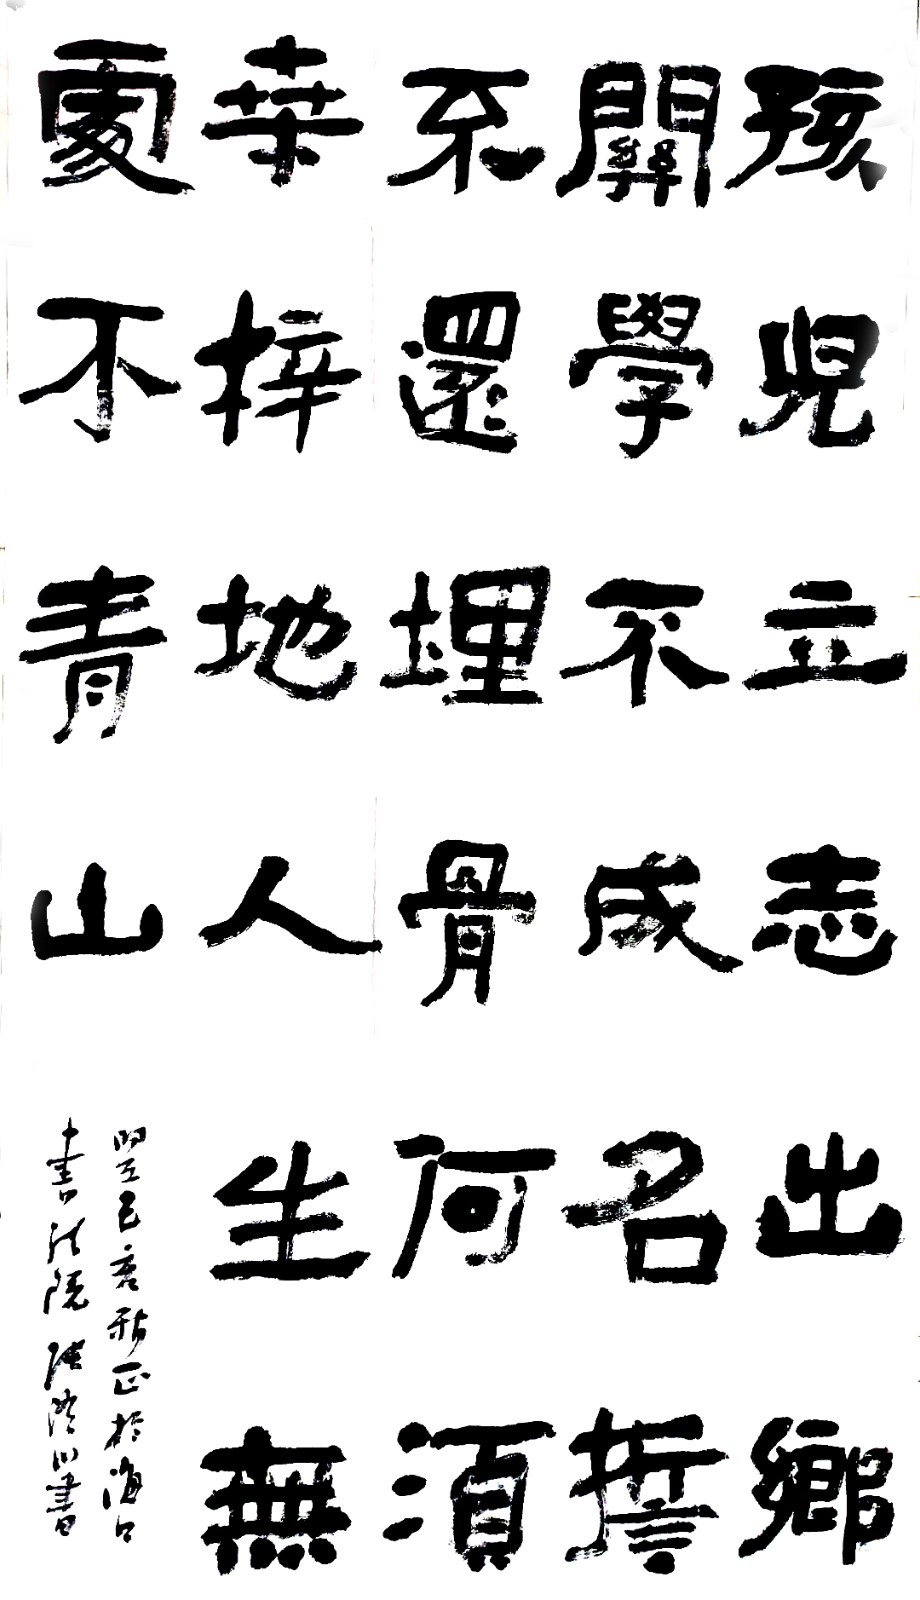 孩兒立志出鄉
關學不成名誓
不還埋骨何須
桑梓地人生無
處不青山
癸巳 於海口
中書 院 書